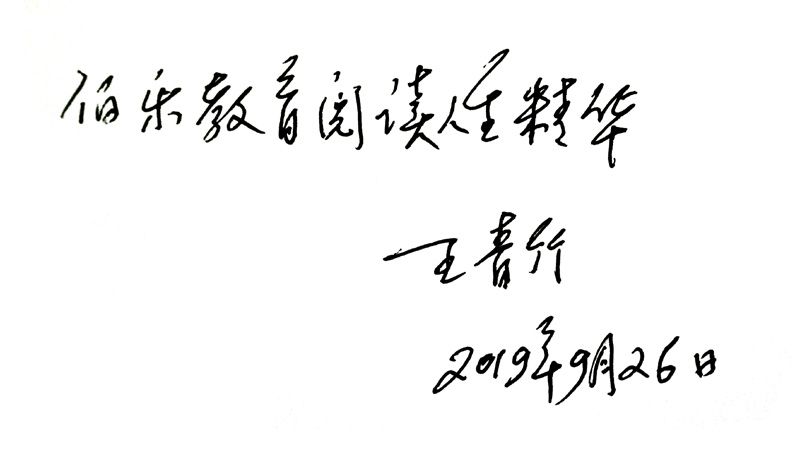 伯乐教育阅读人生精华
王
2019年9月26日